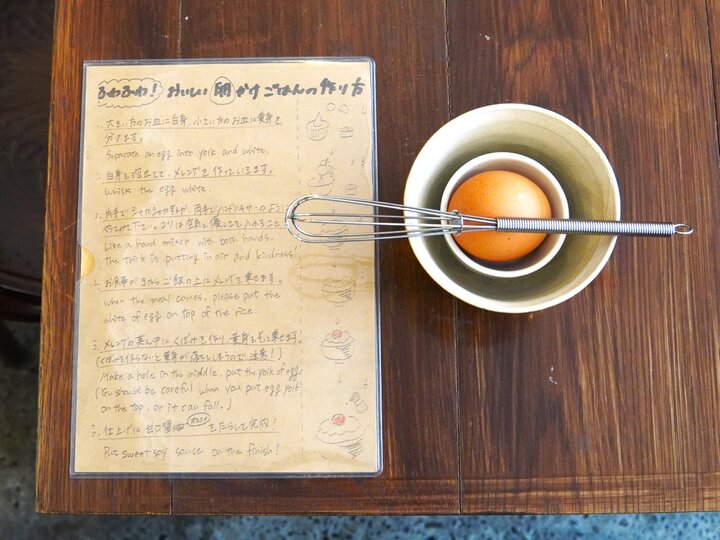 ふわふわ！おいしい卵かけごはんの作り方
1. 大きい方のお皿に白身、小さい方のお皿に黄身を
分けます。
Separate an egg into yolk and white.
2. 白身を泡立てて、メレンゲを作っていきます。
Whisk the egg white.
3. 片手でシャカシャカするか、両手でハンドミキサーのように
やってみて下さい。コツは空気と優しさを入れること
Like a hand mixer with both hands.
The trick is putting in air and kindness!
4. お食事がきたらご飯の上にメレンゲを乗せます。
When the meal comes, please put the
white of egg on top of the rice.
5. メレンゲの真ん中にくぼみを作り、黄身をそっと乗せます。
(くぼみを作らないと黄身が落ちてしまうので注意！)
Make a hole in the middle, put the yolk of egg.
(You should be careful when you put egg yolk
on the top, or it can fall.)
仕上げに甘口醤油をたらして完成！
Put sweet soy sauce on the finish!